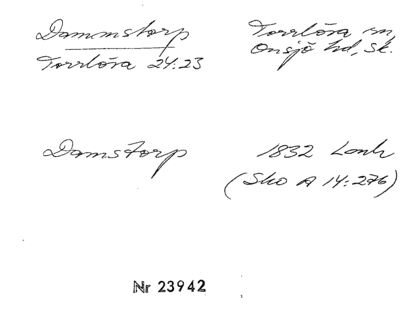 Dammstorp
Torrlösa 24:23
Torrlösa sn,
Onsjö hd, Sk.
Damstorp
1832 Lantm
(Sko A 14:276)
Nr 23942